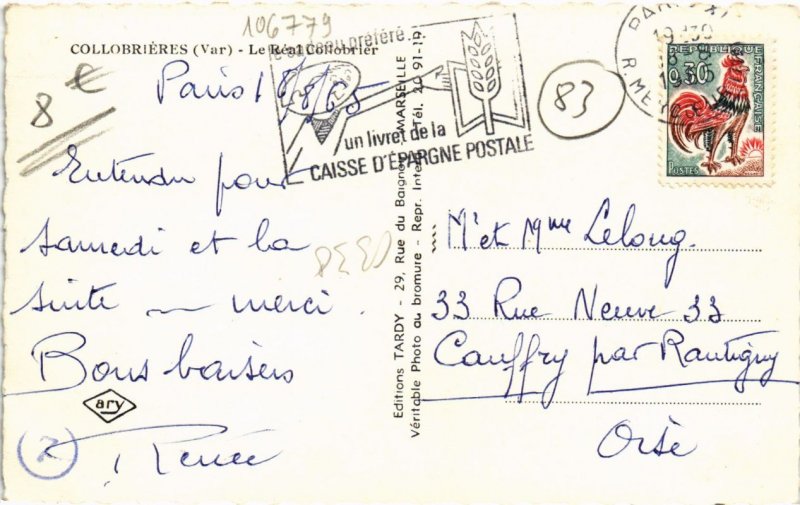 106779
COLLOBRIÈRES (Var) - Le Réal Collobrier
8 €
Paris 18/8/65
Entendu pour
samedi et la
suite ~ merci.
Bons baisers
Renée
ary
7
préféré
un livret de la
CAISSE D'ÉPARGNE POSTALE
83
PARIS XI
19H30
1965
REPUBLIQUE
FRANÇAISE
0,30
POSTES
Editions TARDY - 29, Rue du Baignoir, MARSEILLE
Véritable Photo au bromure - Repr. Inter. Tél. 20 91-19
Mr et Mme Lelong.
33 Rue Neuve 33
Cauffry par Rantigny
Oise